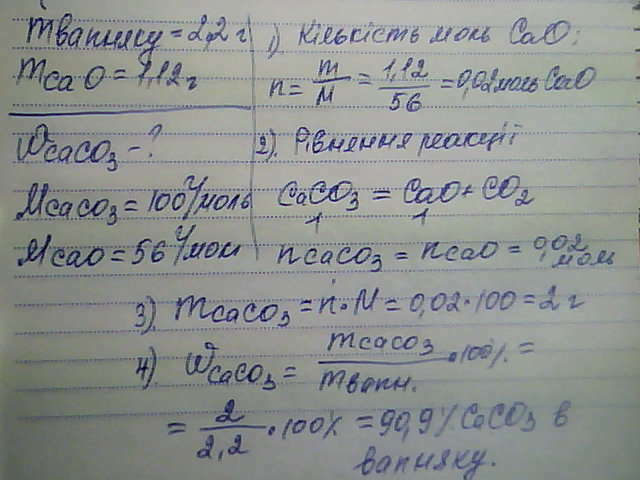 mвапняку = 2,2 г
mCaO = 1,12 г
WCaCO3 - ?
MCaCO3 = 100 г/моль
MCaO = 56 г/моль
1) Кількість моль CaO:
n = m/M = 1,12/56 = 0,02 моль CaO
2). Рівняння реакції
CaCO3 = CaO + CO2
1 1
nCaCO3 = nCaO = 0,02 моль
3) mCaCO3 = n·M = 0,02·100 = 2 г
4) WCaCO3 = mCaCO3/mвапн. ·100% =
= 2/2,2 ·100% = 90,9% CaCO3 в
вапняку.